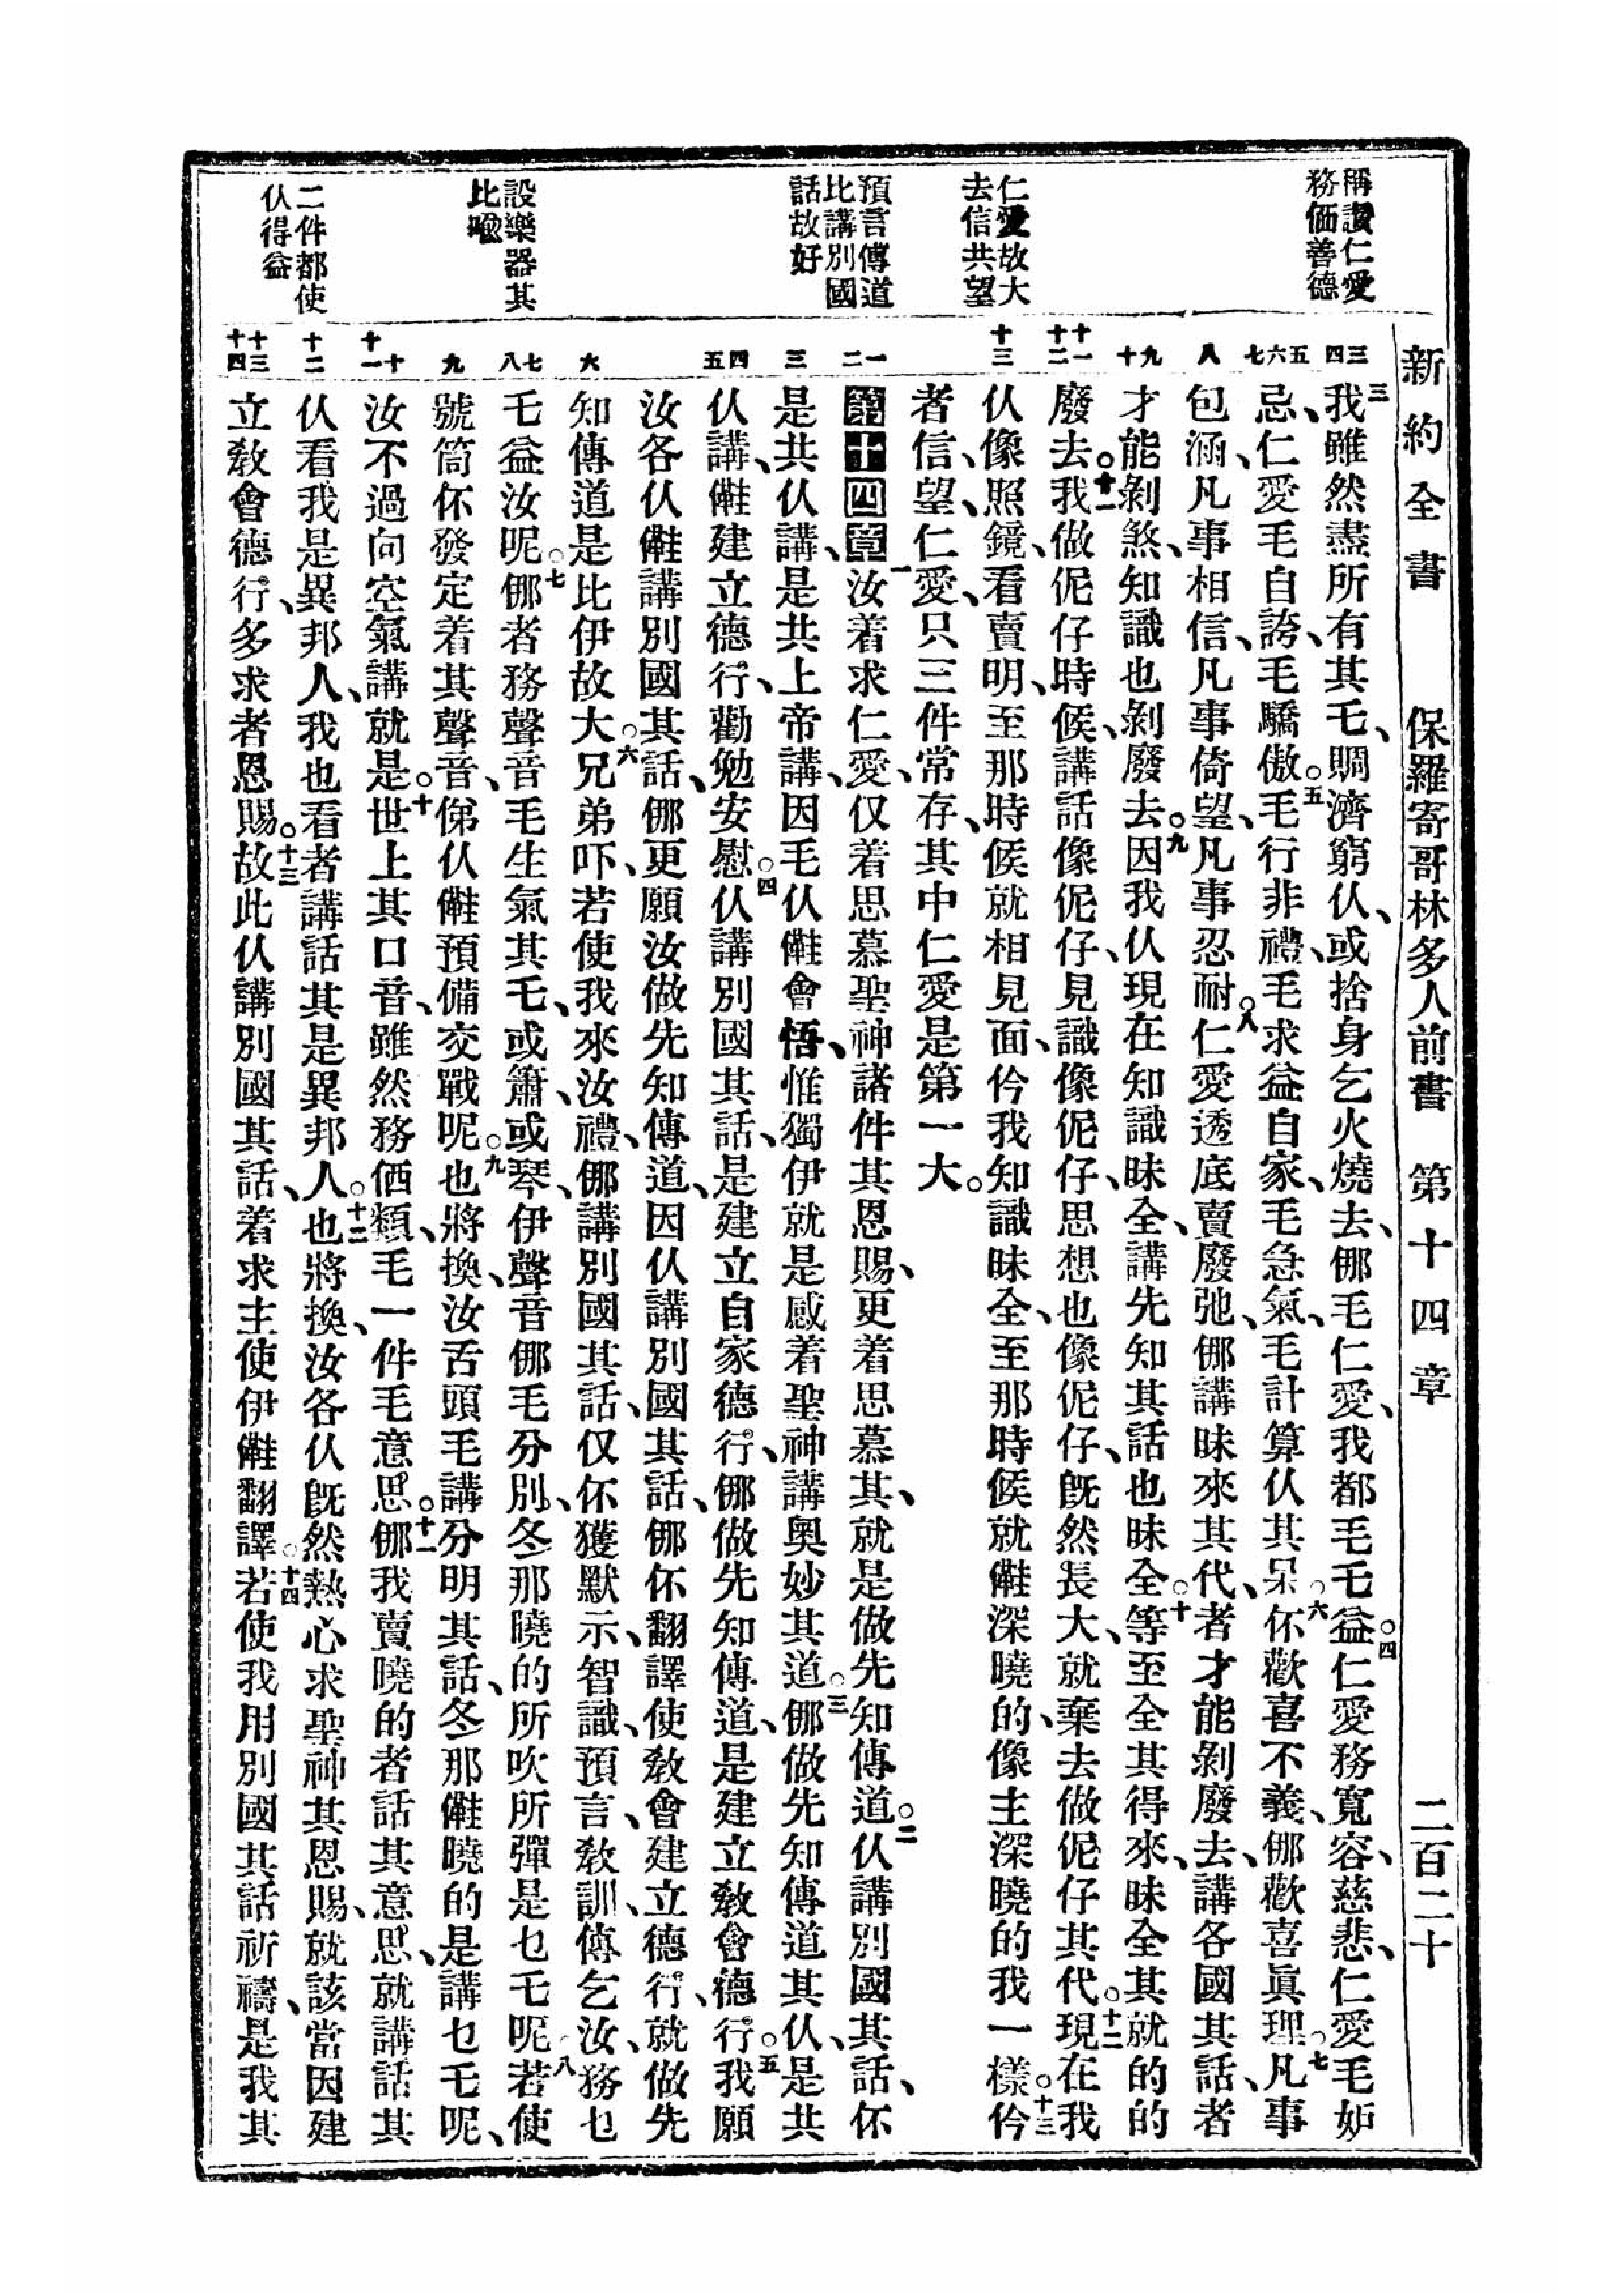 新約全書　保羅寄哥林多人前書　第十四章　二百二十
稱讚仁愛
務価善德
仁愛故大
去信共望
預言傳道
比講別國
話故好
設樂器其
比喩
二件都使
仪得益
三 四 五 六 七 八 九 十 十一 十二 十三 一 二 三 四 五 六 七 八 九 十 十一 十二 十三 十四
三我雖然盡所有其乇、賙濟窮仪、或捨身乞火燒去、倻毛仁愛、我都毛乇益。四仁愛務寬容、慈悲、仁愛毛妒
忌、仁愛毛自誇、毛驕傲。五毛行非禮、毛求益自家、毛急氣、毛計算仪其呆。六伓歡喜不義、倻歡喜眞理。七凡事
包涵、凡事相信、凡事倚望、凡事忍耐。八仁愛透底賣廢弛、倻講昧來其代、者才能剝廢去、講各國其話、者
才能剝煞、知識也剝廢去。九因我仪現在知識昧全、講先知其話也昧全。十等至全其得來、昧全其就的的
廢去。十一我做伲仔時候、講話像伲仔、見識像伲仔、思想也像伲仔、旣然長大、就棄去做伲仔其代。十二現在我
仪像照鏡、看賣明、至那時候就相見面、仱我知識昧全、至那時候就𠆧深曉的、像主深曉的我一樣。十三仱
者信、望、仁愛、只三件常存、其中仁愛是第一大。
第十四章 一汝着求仁愛、仅着思慕聖神諸件其恩賜、更着思慕其、就是做先知傳道。二仪講別國其話、伓
是共仪講、是共上帝講、因毛仪𠆧會悟、惟獨伊就是感着聖神講奧妙其道。三倻做先知傳道其仪、是共
仪講、𠆧建立德行、勸勉安慰。四仪講別國其話、是建立自家德行、倻做先知傳道、是建立教會德行。五我願
汝各仪𠆧講別國其話、倻更願汝做先知傳道、因仪講別國其話、倻伓翻譯使教會建立德行、就做先
知傳道是比伊故大。六兄弟吓、若使我來汝禮、倻講別國其話、仅伓獲默示、智識、預言、教訓、傳乞汝、務乜
乇益汝呢。七倻者務聲音毛生氣其乇、或簫、或琴、伊聲音倻毛分別、冬那曉的所吹所彈是乜乇呢。八若使
號筒伓發定着其聲音、俤仪𠆧預備交戰呢。九也將換、汝舌頭毛講分明其話、冬那𠆧曉的是講乜乇呢、
汝不過向空氣講就是。十世上其口音、雖然務価類、毛一件毛意思。十一倻我賣曉的者話其意思、就講話其
仪看我是異邦人、我也看者講話其是異邦人。十二也將換、汝各仪旣然熱心求聖神其恩賜、就該當因建
立教會德行、多求者恩賜。十三故此仪講別國其話、着求主使伊𠆧翻譯。十四若使我用別國其話祈禱、是我其